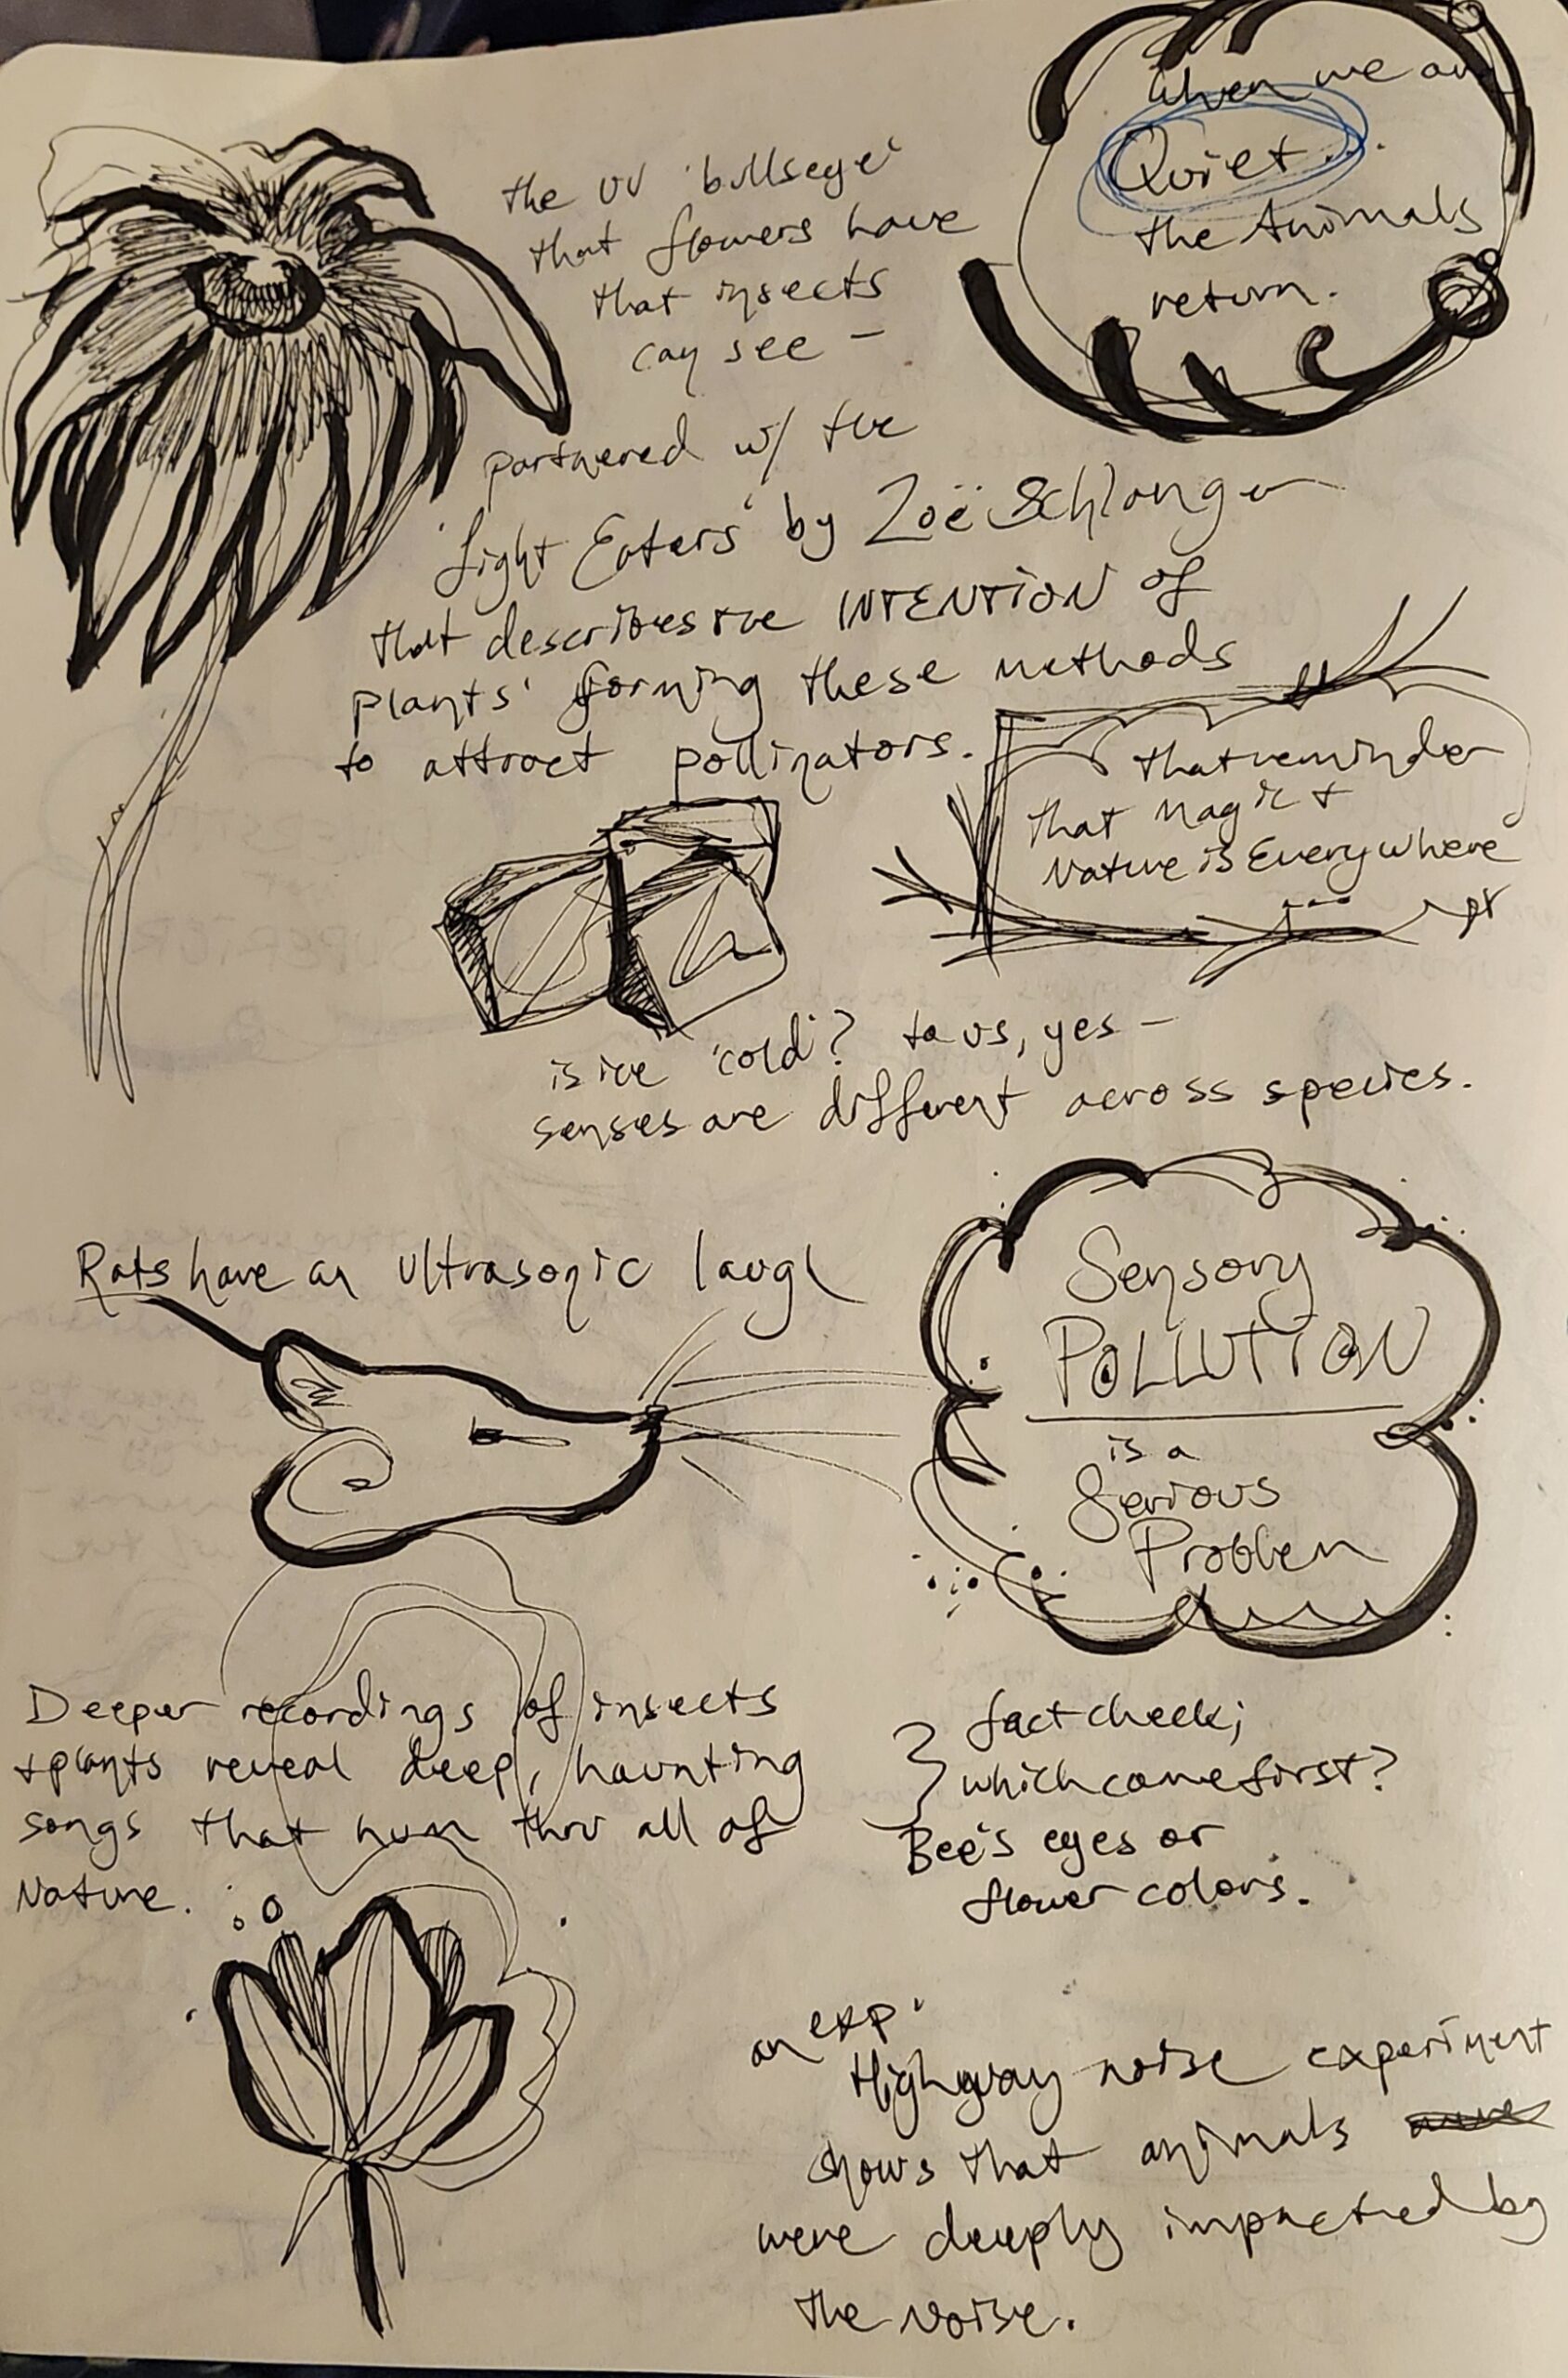 the UV 'bullseye'
that flowers have
that insects
can see –
partnered w/ the
'Light Eaters' by Zoë Schlanger
that describes the INTENTION of
plants' forming these methods
to attract pollinators.
When we are
Quiet...
the Animals
return.
that reminder
that Magic +
Nature is Everywhere
is ice 'cold'? to us, yes –
senses are different across species.
Rats have an ultrasonic laugh
Sensory
POLLUTION
is a
Serious
Problem
Deeper recordings of insects
+ plants reveal deep, haunting
songs that hum thru all of
Nature.
fact check;
which came first?
Bee's eyes or
flower colors.
an exp.
Highway noise experiment
shows that animals
were deeply impacted by
the Noise.